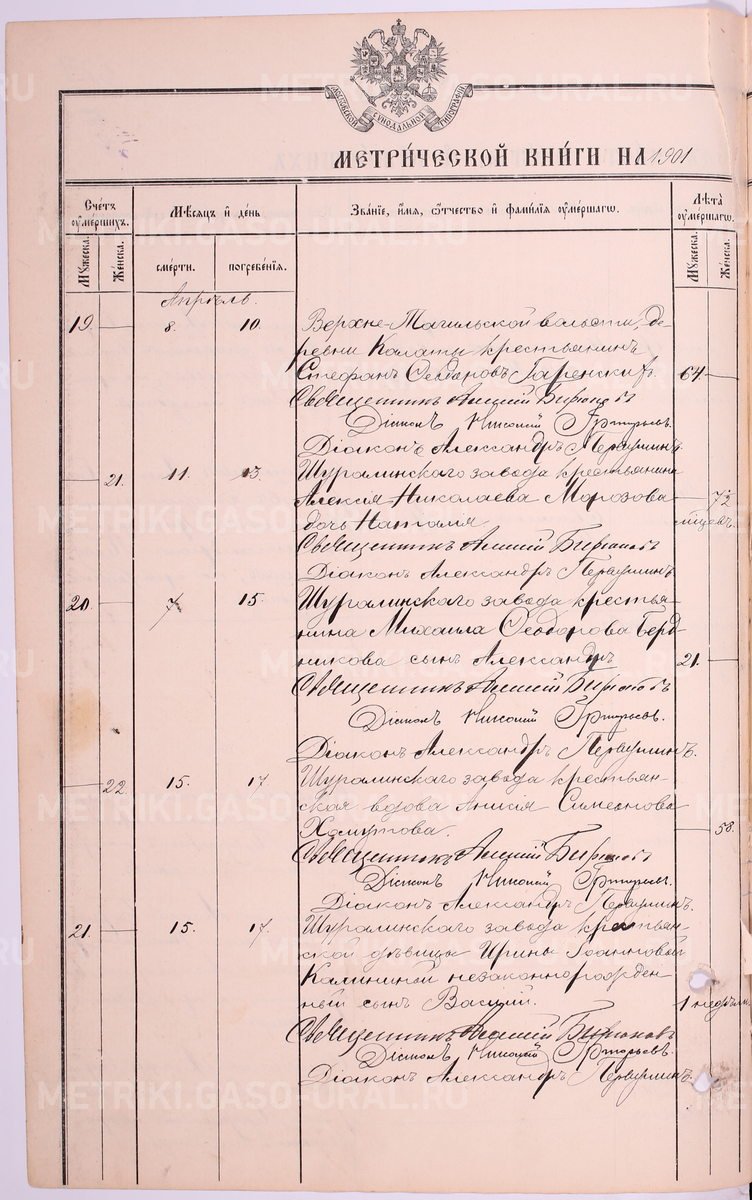 МОСКОВСКОЙ СѴНОДАЛЬНОЙ ТИПОГРАФІИ
МЕТРИ́ЧЕСКОЙ КНИ́ГИ НА 1901
Счетъ ѹме́ршихъ.
Мѣсяцъ и҆ де́нь
Зва́нїе, и҆́мя, ѻ҆́тчество и҆ фами́лїѧ ѹме́ршагѡ.
Лѣта̀ ѹме́ршагѡ.
Мꙋжеска. Же́нска. сме́рти. погребе́нїѧ. Мꙋжеска. Же́нска.
Апрѣль.
19. — 8. 10. Верхне-Тагильской волости, де-
ревни Калаты крестьянинъ
Стефанъ Ѳеодоровъ 64. —
Священникъ Алексій Бирюковъ
Діаконъ Николай Григорьевъ.
Діаконъ Александръ Первушинъ.
— 21. 11. 13. Шуралинскаго завода крестьянина
Алексія Николаева Морозова — 7½
дочь Наталія мѣсяцевъ.
Священникъ Алексій Бирюковъ
Діаконъ Александръ Первушинъ.
20. — 7. 15. Шуралинскаго завода крестья-
нина Михаила Ѳеодорова Берд-
никова сынъ Александръ 21. —
Священникъ Алексій Бирюковъ
Діаконъ Николай Григорьевъ.
Діаконъ Александръ Первушинъ.
— 22. 15. 17. Шуралинскаго завода крестьян-
ская вдова Анисія Симеонова
Хомутова. — 58.
Священникъ Алексій Бирюковъ
Діаконъ Николай Григорьевъ.
Діаконъ Александръ Первушинъ.
21. — 15. 17. Шуралинскаго завода крестьян-
ской дѣвицы Ирины Іоанновой
Калининой незаконнорожден-
ный сынъ Василій. 1 недѣли
Священникъ Алексій Бирюковъ
Діаконъ Николай Григорьевъ.
Діаконъ Александръ Первушинъ.
METRIKI.GASO-URAL.RU